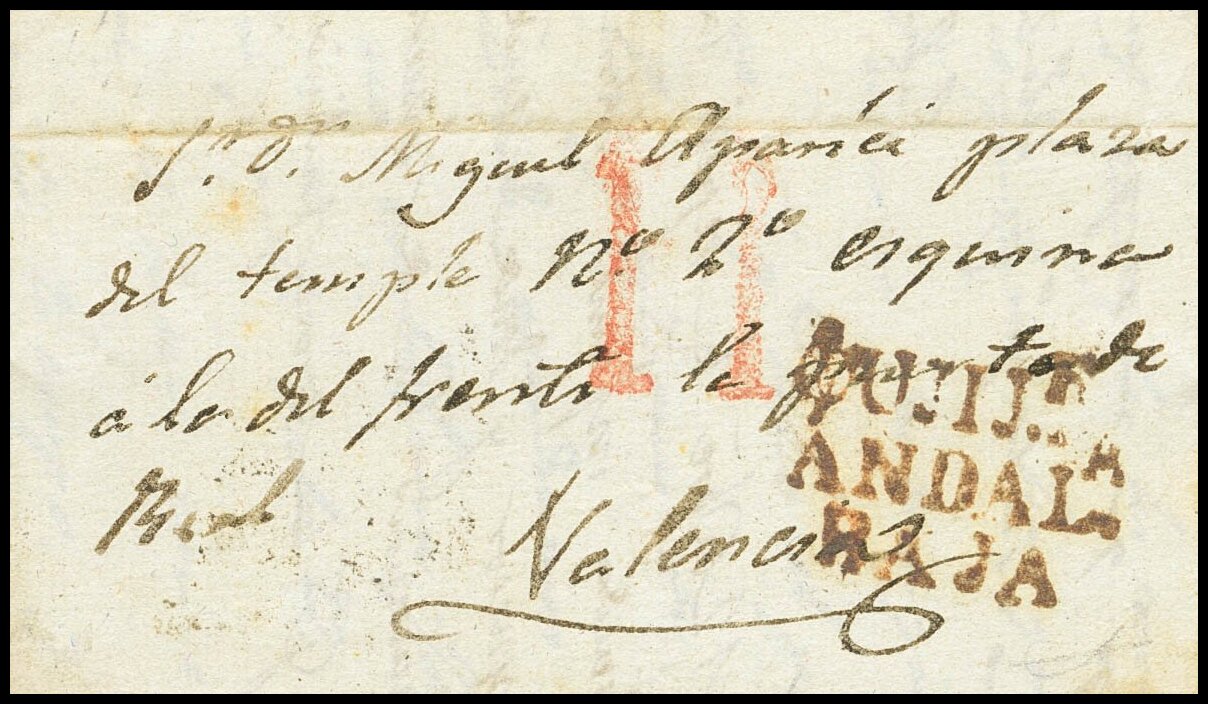 Sr. Dn. Miguel Aparici plaza
del temple No. 2o esquina
á la del frente la puerta de
Real
Valencia
11
ANDALA.
BAJA